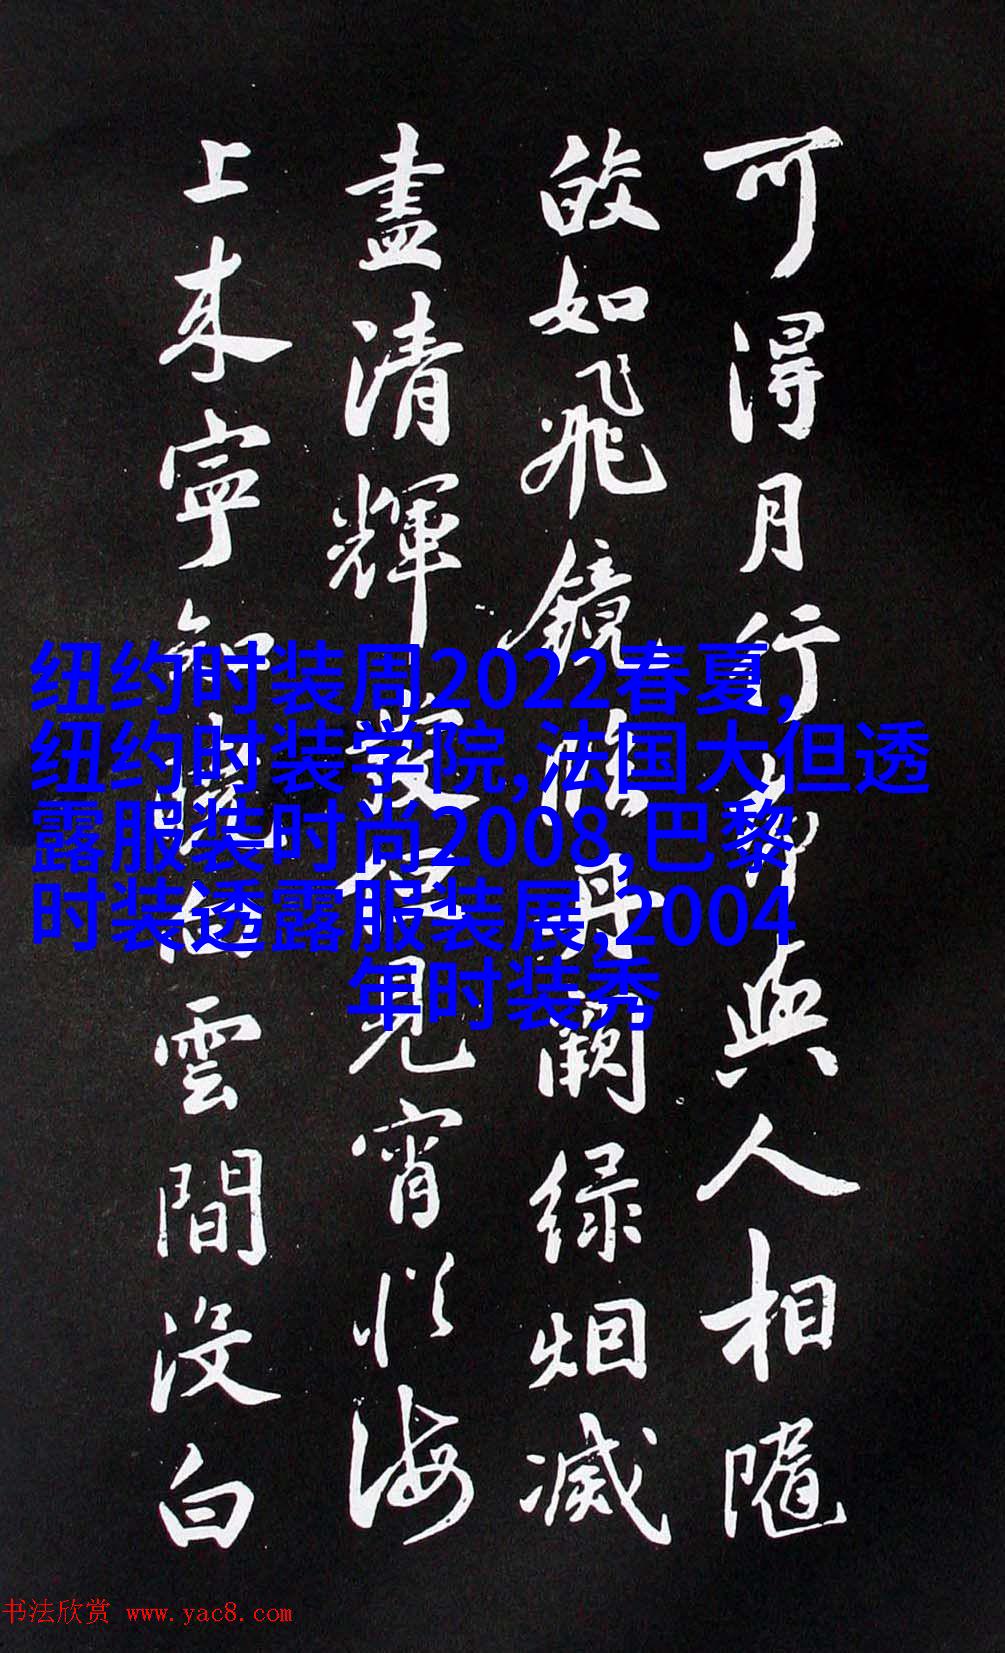 可得月行却與人相隨
皎如飛鏡臨丹闕緑烟滅
盡清輝發但見宵從海
上来寧知曉向雲間没白
纽约时装周2022春夏,
纽约时装学院,法国大但透
露服装时尚2008,巴黎
时装透露服装展,2004
年时装秀
书法欣赏 www.yac8.com